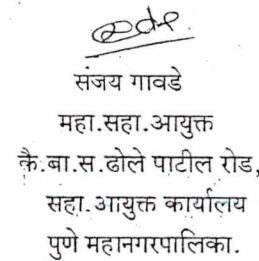 संजय गावडे
महा.सहा.आयुक्त
कै.बा.स.ढोले पाटील रोड,
सहा.आयुक्त कार्यालय
पुणे महानगरपालिका.